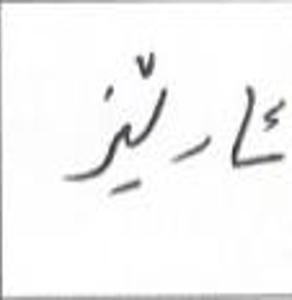 ئارێز